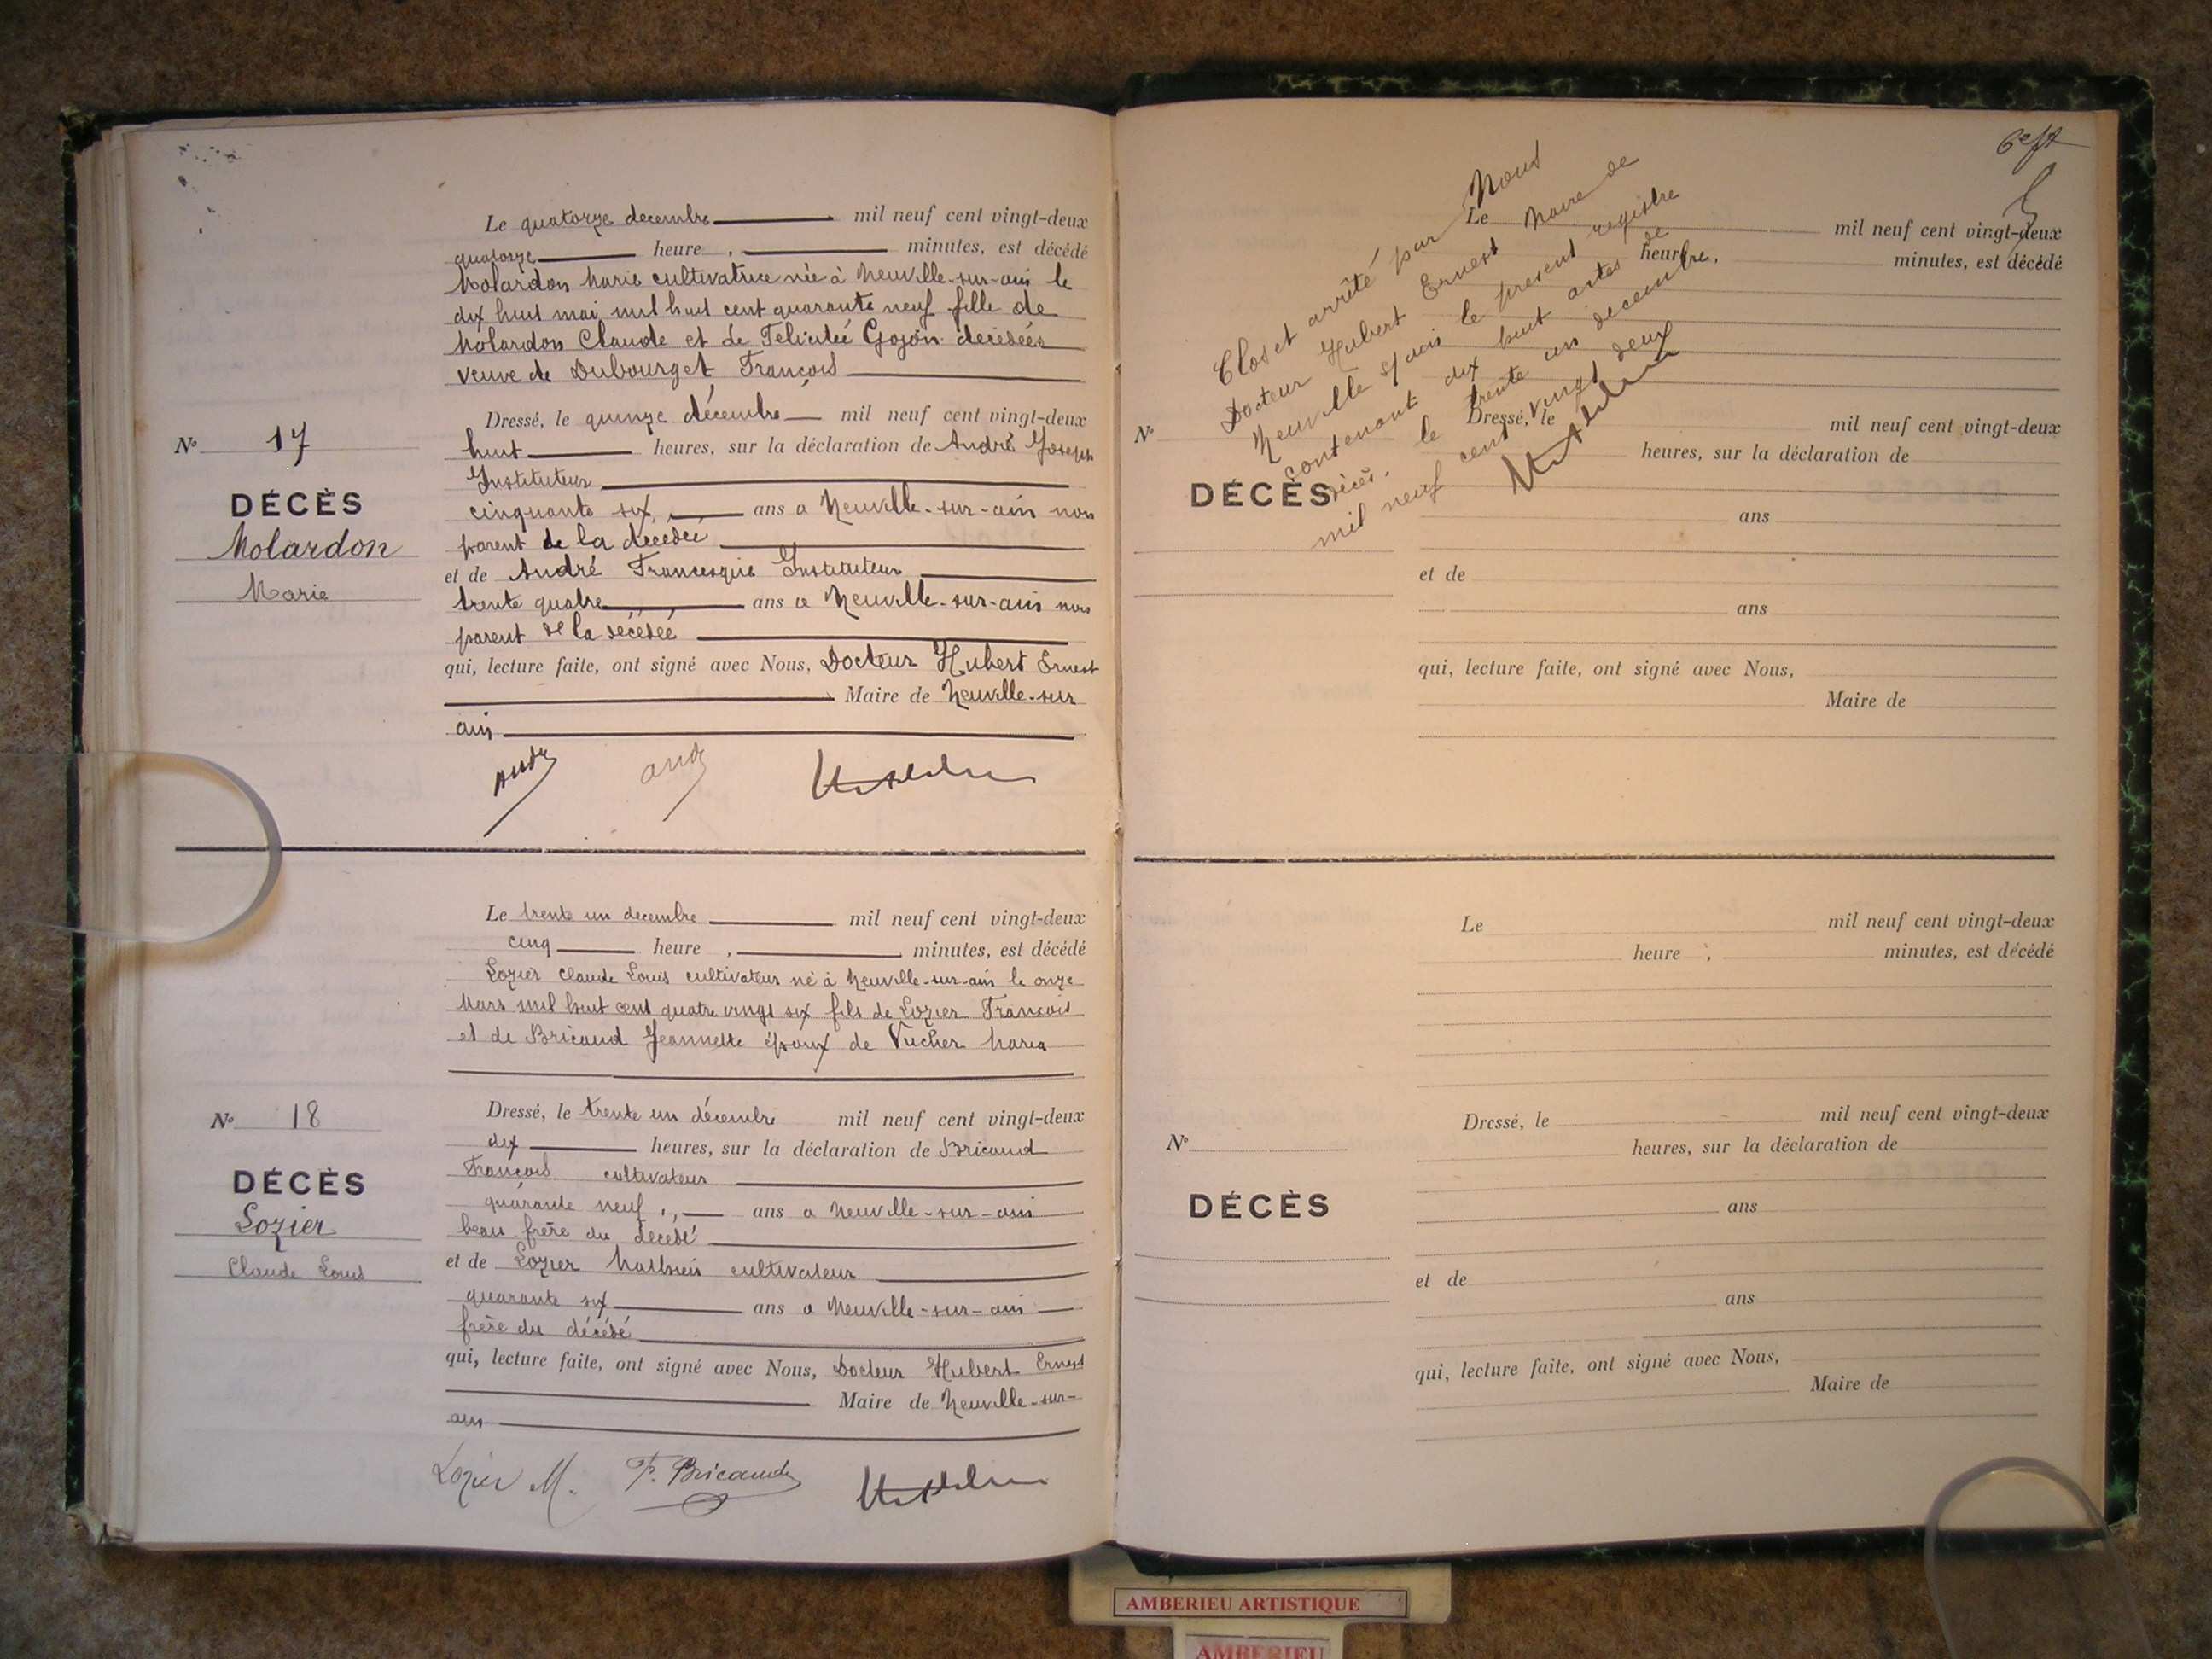 Le quatorze decembre mil neuf cent vingt-deux
quatorze heure , minutes, est décédé
Molardon Marie cultivatrice née à Neuville-sur-ain le
dix huit mai mil huit cent quarante neuf fille de
Molardon Claude et de Felicitée Gojon decédées
veuve de Dubourget François
Dressé, le quinze décembre mil neuf cent vingt-deux
N° 17
huit heures, sur la déclaration de André Joseph
Instituteur
DÉCÈS
cinquante six ans a Neuville-sur-ain non
Molardon
parent de la décédée
Marie
et de André Francisque Instituteur
trente quatre ans a Neuville-sur-ain non
parent de la décédée
qui, lecture faite, ont signé avec Nous, Docteur Hubert Ernest
Maire de Neuville-sur
ain
André André
Le trente un decembre mil neuf cent vingt-deux
cinq heure , minutes, est décédé
Lozier Claude Louis cultivateur né à Neuville-sur-ain le onze
Mars mil huit cent quatre vingt six fils de Lozier François
et de Bricaud Jeannette époux de Vucher Maria
Dressé, le trente un décembre mil neuf cent vingt-deux
N° 18
dix heures, sur la déclaration de Bricaud
François cultivateur
DÉCÈS
quarante neuf ans a Neuville-sur-ain
Lozier
beau frère du décédé
Claude Louis
et de Lozier Mathieu cultivateur
quarante six ans a Neuville-sur-ain
frère du décédé
qui, lecture faite, ont signé avec Nous, Docteur Hubert Ernest
Maire de Neuville-sur-
ain
Lozier M. F. Bricaud
Clos et arrêté par Nous
Docteur Hubert Ernest Maire de
Neuville s/ ain le present registre
contenant dix huit actes de
décès. le trente un decembre,
mil neuf cent vingt deux
Le mil neuf cent vingt-deux
heure, minutes, est décédé
Dressé, le mil neuf cent vingt-deux
N°
heures, sur la déclaration de
DÉCÈS
ans
et de
ans
qui, lecture faite, ont signé avec Nous,
Maire de
Le mil neuf cent vingt-deux
heure , minutes, est décédé
Dressé, le mil neuf cent vingt-deux
N°
heures, sur la déclaration de
DÉCÈS
ans
et de
ans
qui, lecture faite, ont signé avec Nous,
Maire de
AMBERIEU ARTISTIQUE
AMBERIEU